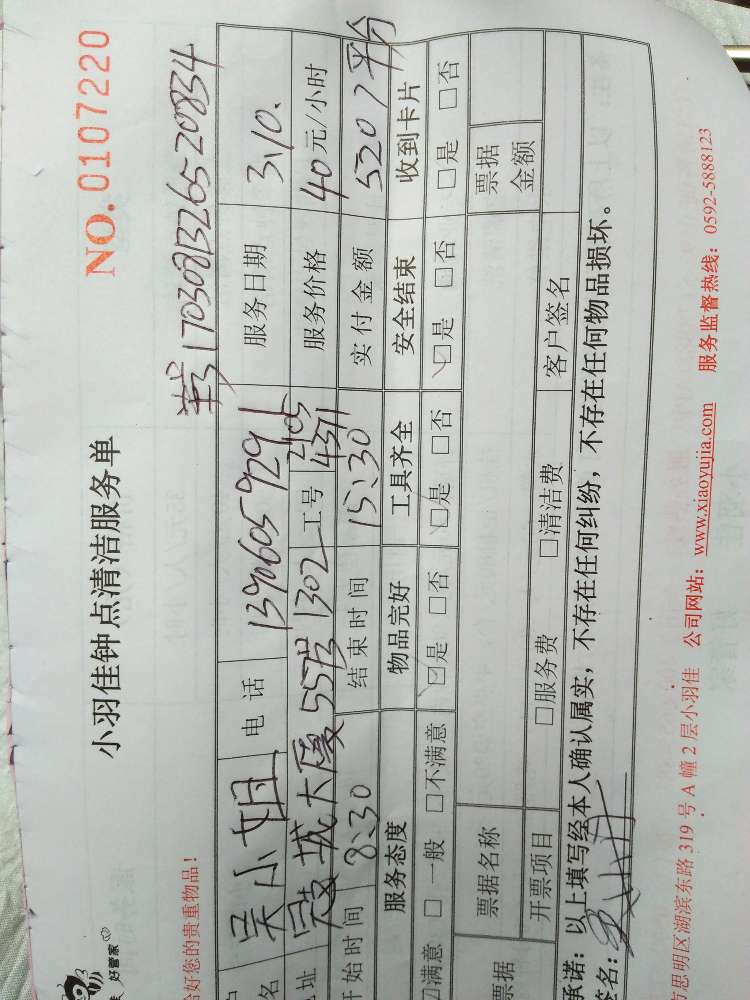 小羽佳钟点清洁服务单
NO. 0107220
好管家
给好您的贵重物品！
单号1703081326520834
名 吴小姐 电话 13906059291 服务日期 3,10.
址 城大厦55号1302 工号 2105 4371 服务价格 40元/小时
开始时间 8:30 结束时间 15:30 实付金额 520
服务态度 物品完好 工具齐全 安全结束 收到卡片
☑满意 □一般 □不满意 ☑是 □否 ☑是 □否 ☑是 □否 □是 □否
票据 票据名称 票据金额
开票项目 □服务费 □清洁费 客户签名
承诺：以上填写经本人确认属实，不存在任何纠纷，不存在任何物品损坏。
签名：
思明区湖滨东路319号A幢2层小羽佳 公司网站：www.xiaoyujia.com 服务监督热线：0592-5888123